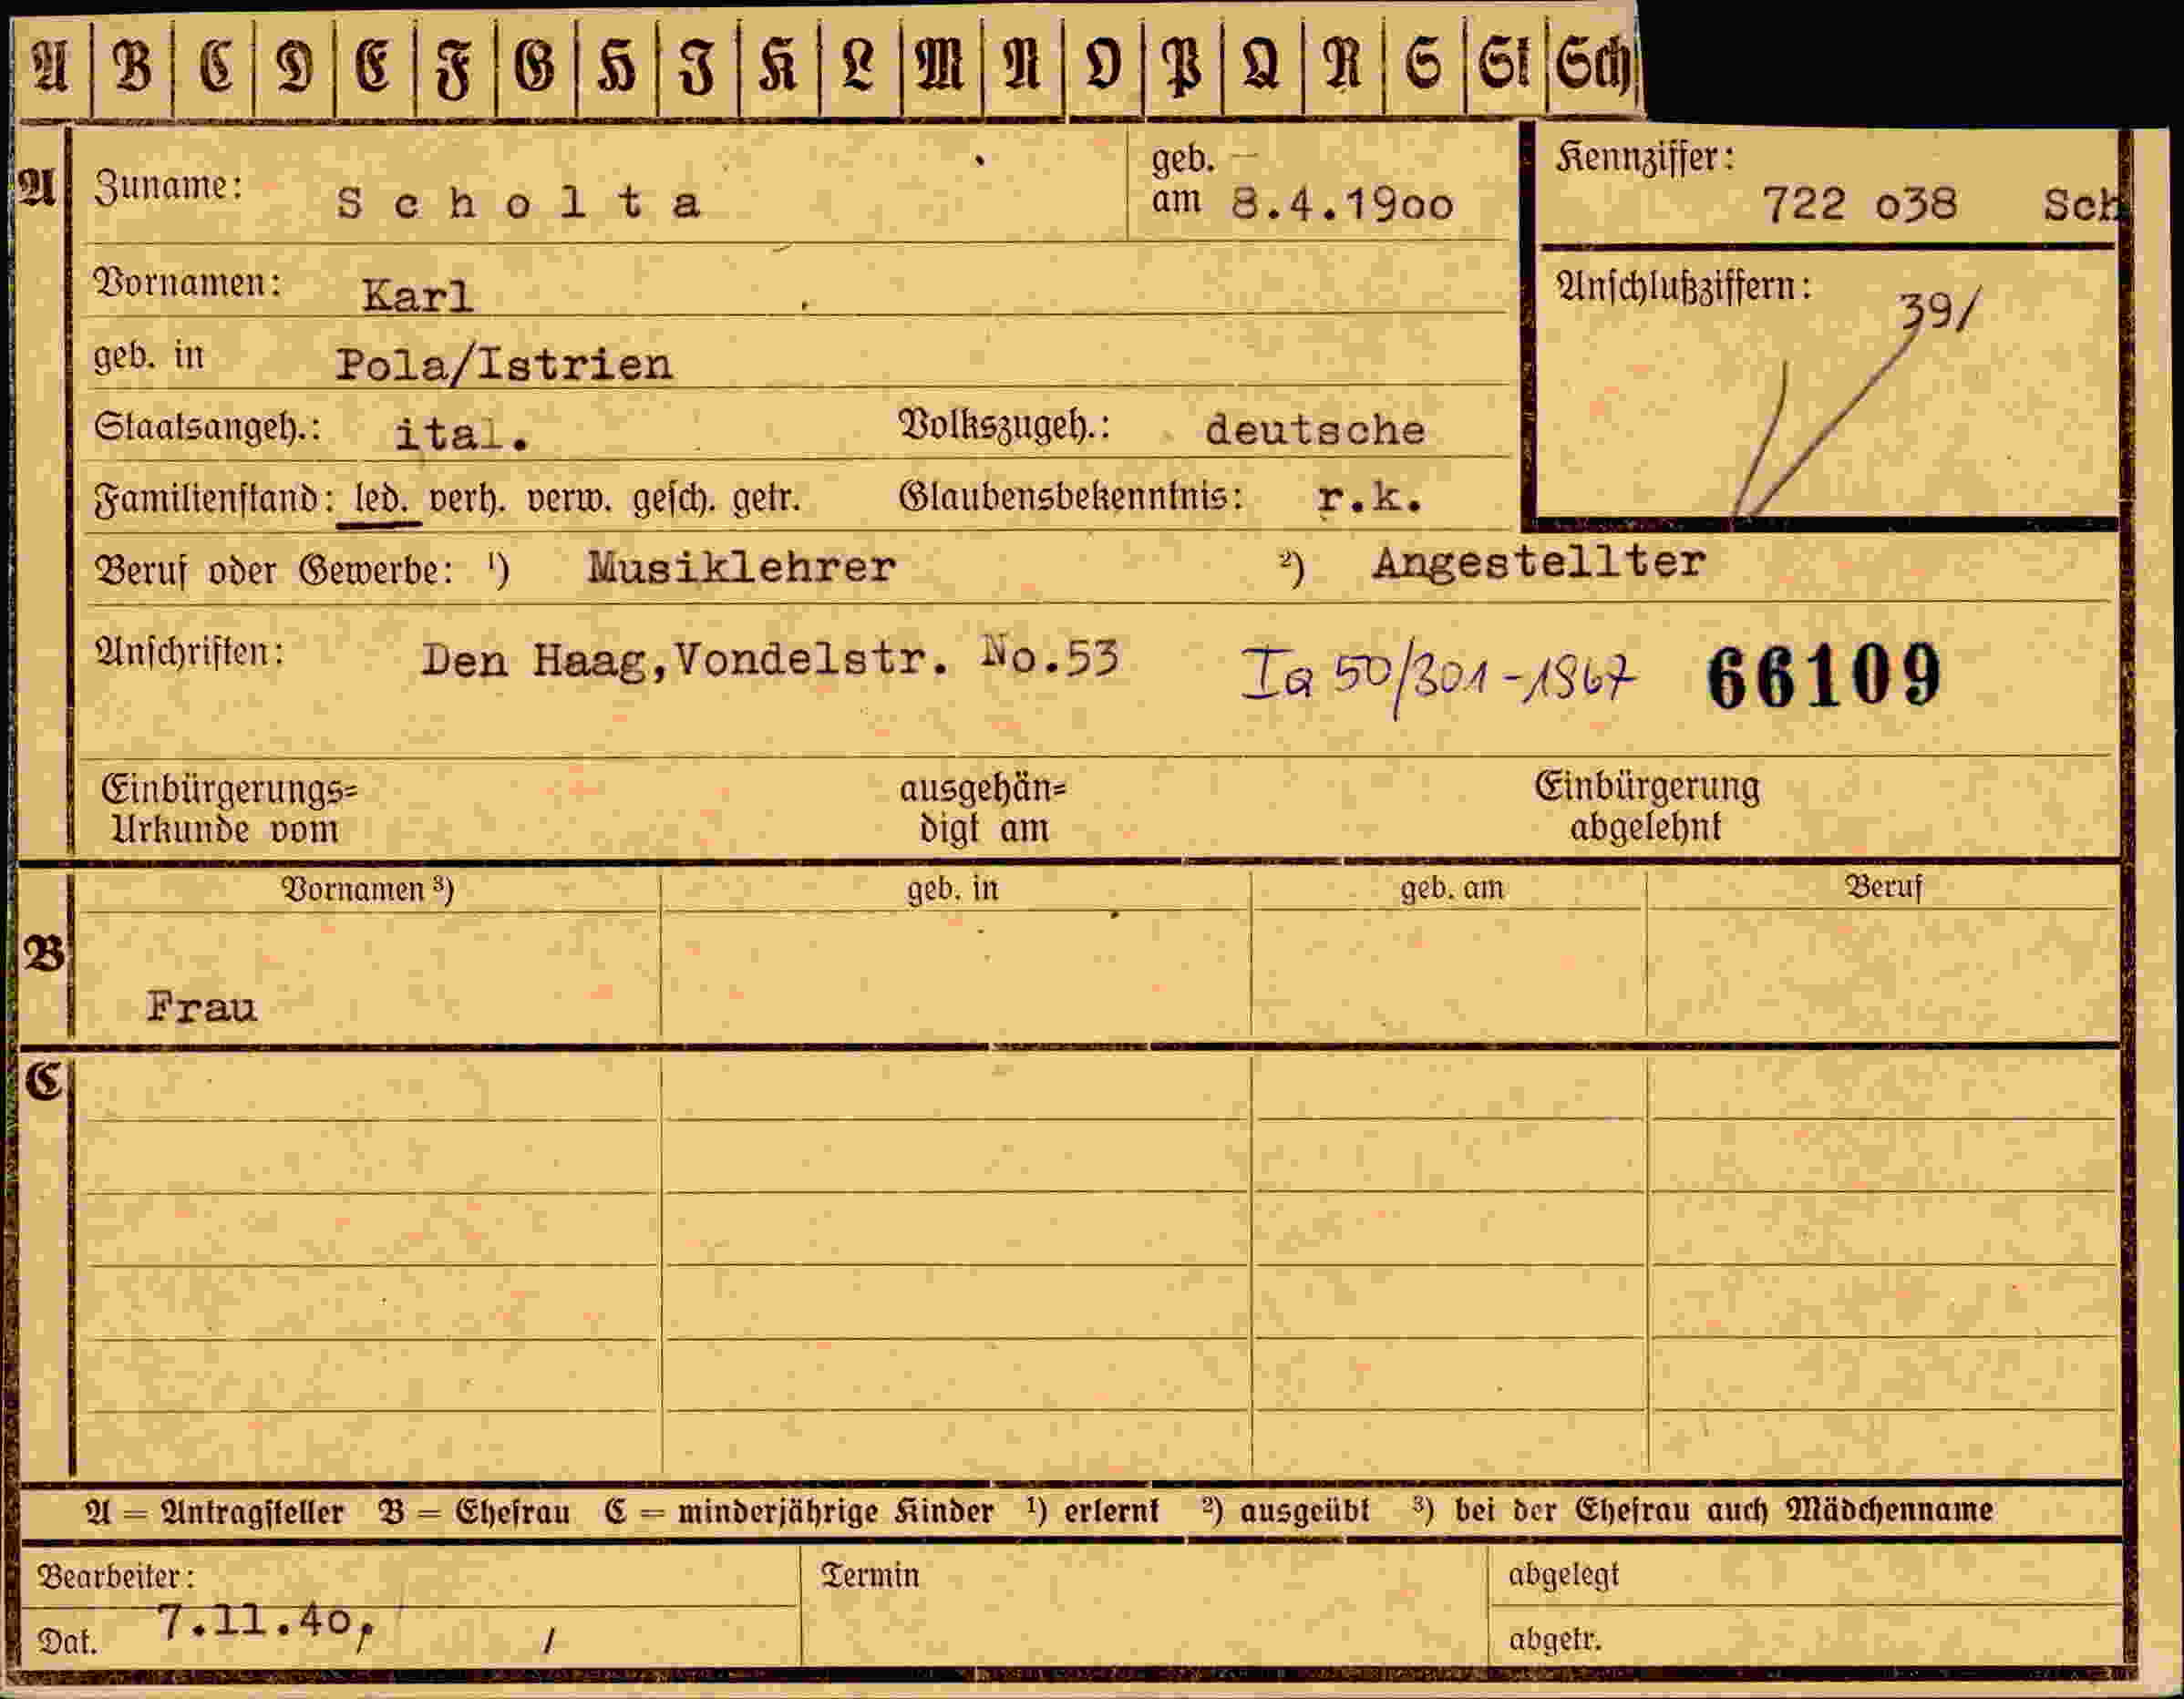 A B C D E F G H I K L M N O P Q R S St Sch
A Zuname: Scholta geb. am 8.4.1900 Kennziffer: 722 o38 Sch
Vornamen: Karl Anschlußziffern: 39/
geb. in Pola/Istrien
Staatsangeh.: ital. Volkszugeh.: deutsche
Familienstand: led. verh. verw. gesch. getr. Glaubensbekenntnis: r.k.
Beruf oder Gewerbe: ¹) Musiklehrer ²) Angestellter
Anschriften: Den Haag,Vondelstr. No.53 Ia 50/301-1967 66109
Einbürgerungs= ausgehän= Einbürgerung
Urkunde vom digt am abgelehnt
Vornamen ³) geb. in geb. am Beruf
B
Frau
C
A = Antragsteller B = Ehefrau C = minderjährige Kinder ¹) erlernt ²) ausgeübt ³) bei der Ehefrau auch Mädchenname
Bearbeiter: Termin abgelegt
Dat. 7.11.40, / abgetr.